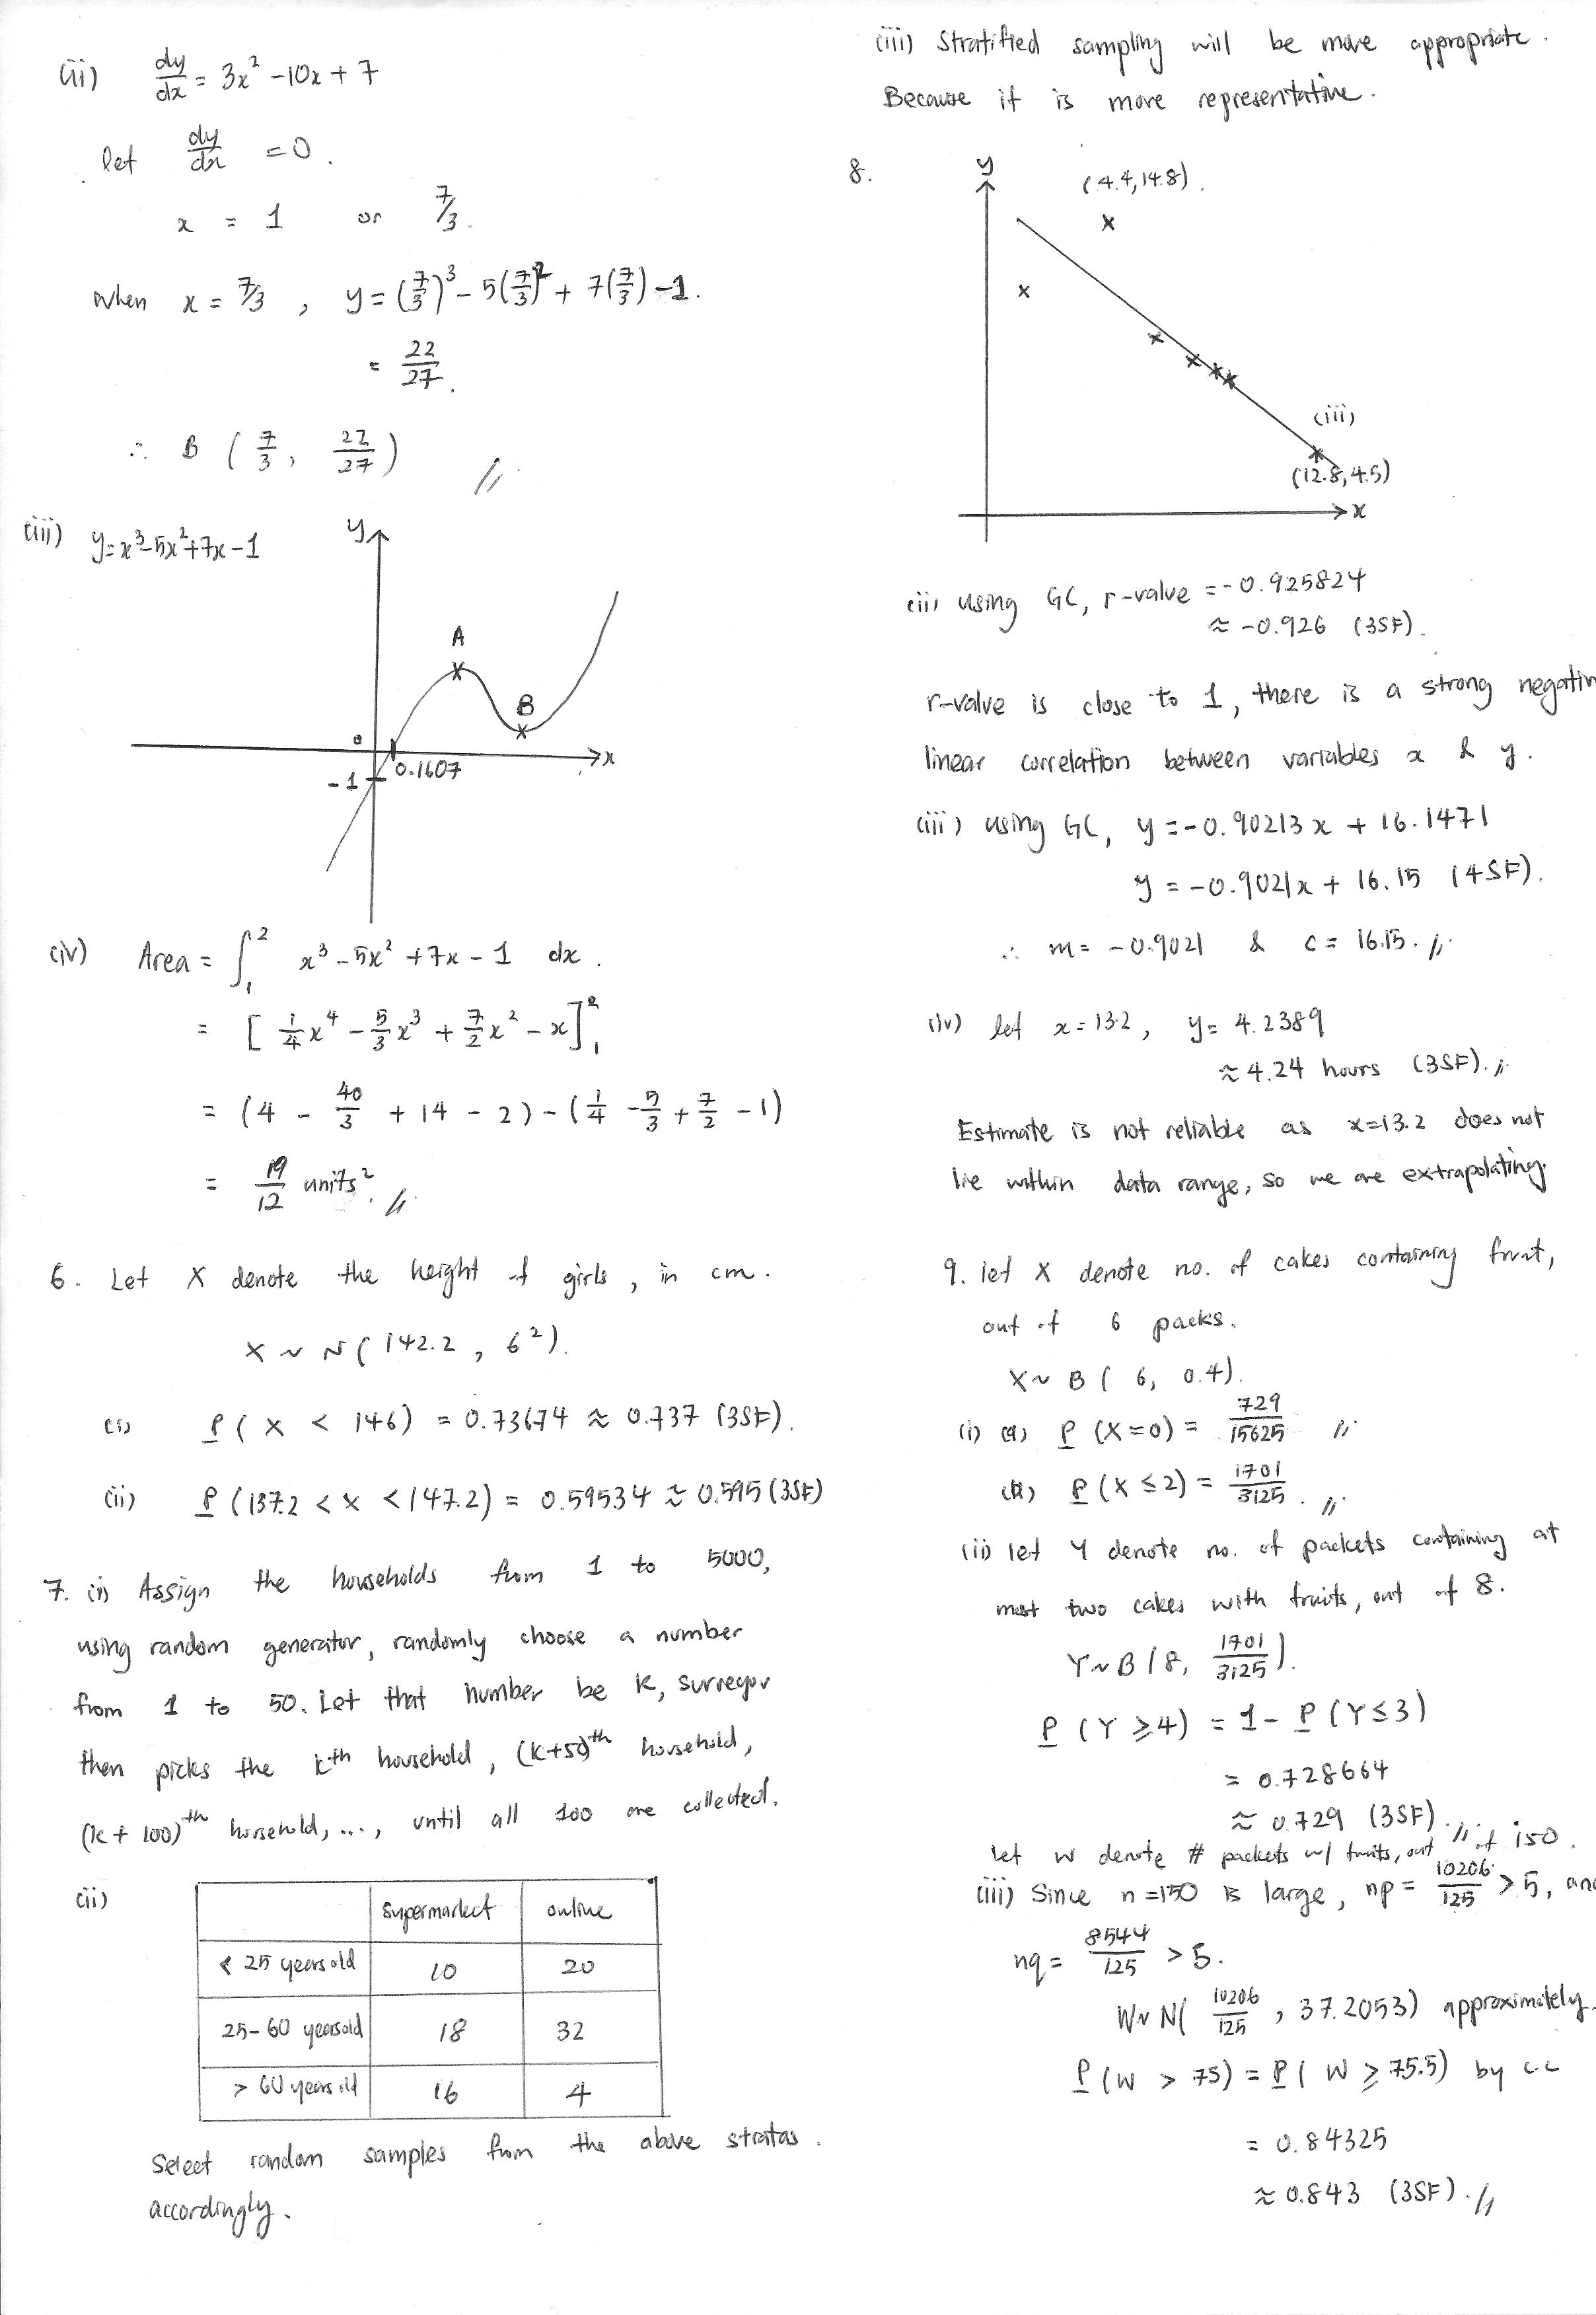 (ii) dy/dx = 3x² - 10x + 7
let dy/dx = 0.
x = 1 or 7/3.
when x = 7/3, y = (7/3)³ - 5(7/3)² + 7(7/3) - 1.
= 22/27.
∴ B (7/3, 22/27) //
(iii) y = x³ - 5x² + 7x - 1
y
A
B
0
x
0.1607
-1
(iv) Area = ∫₁² x³ - 5x² + 7x - 1 dx.
= [1/4 x⁴ - 5/3 x³ + 7/2 x² - x]₁²
= (4 - 40/3 + 14 - 2) - (1/4 - 5/3 + 7/2 - 1)
= 19/12 units². //
6. Let X denote the height of girls, in cm.
X ~ N(142.2, 6²).
(i) P(X < 146) = 0.73674 ≈ 0.737 (3SF).
(ii) P(137.2 < X < 147.2) = 0.59534 ≈ 0.595 (3SF)
7. (i) Assign the households from 1 to 5000,
using random generator, randomly choose a number
from 1 to 50. Let that number be k, surveyor
then picks the kth household, (k+50)th household,
(k+100)th household, ..., until all 100 are collected.
(ii)
supermarket online
< 25 years old 10 20
25-60 years old 18 32
> 60 years old 16 4
Select random samples from the above stratas.
accordingly.
(iii) Stratified sampling will be more appropriate.
Because it is more representative.
8.
y
(4.4, 14.8).
(iii)
(12.8, 4.5)
x
(ii) using GC, r-value = -0.925824
≈ -0.926 (3SF).
r-value is close to 1, there is a strong negativ
linear correlation between variables x & y.
(iii) using GC, y = -0.90213x + 16.1471
y = -0.9021x + 16.15 (4SF).
∴ m = -0.9021 & c = 16.15. //
(iv) let x = 13.2, y = 4.2389
≈ 4.24 hours (3SF). //
Estimate is not reliable as x=13.2 does not
lie within data range, so we are extrapolating.
9. let X denote no. of cakes containing fruit,
out of 6 packs.
X ~ B(6, 0.4).
(i) (a) P(X=0) = 729/15625 //
(b) P(X ≤ 2) = 1701/3125. //
(ii) let Y denote no. of packets containing at
most two cakes with fruits, out of 8.
Y ~ B(8, 1701/3125).
P(Y ≥ 4) = 1 - P(Y ≤ 3)
= 0.728664
≈ 0.729 (3SF). //
let W denote # packets w/ fruits, out of 150.
(iii) Since n = 150 is large, np = 10206/125 > 5, and
nq = 8544/125 > 5.
W ~ N(10206/125, 37.2053) approximately.
P(W > 75) = P(W ≥ 75.5) by c.c
= 0.84325
≈ 0.843 (3SF). //